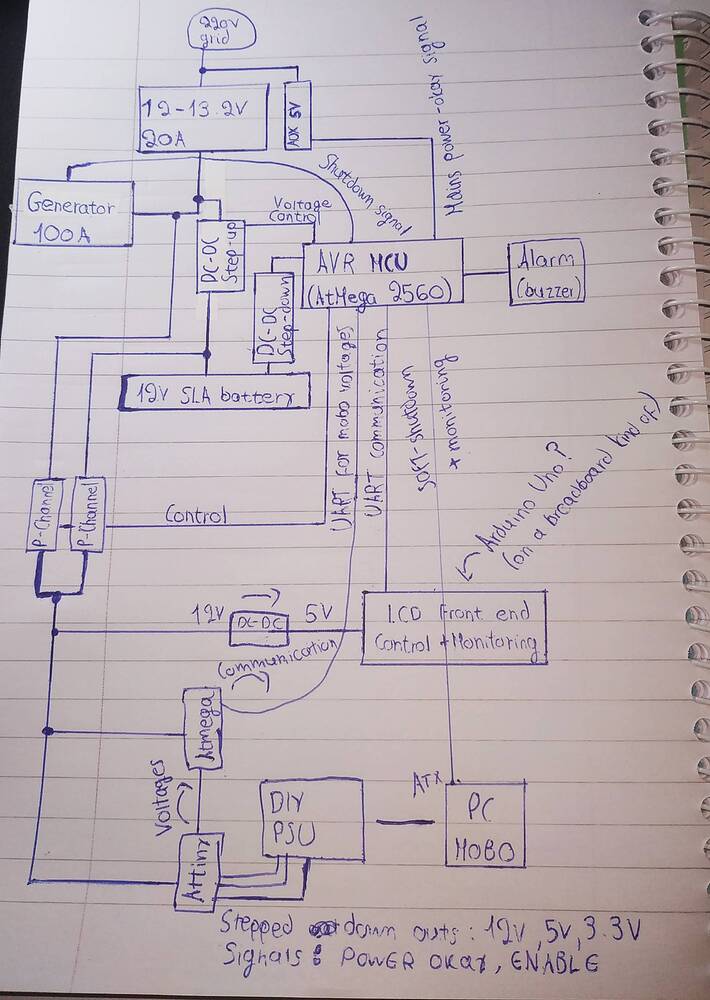 220V
grid
12-13.2V
20A
AUX 5V
Mains power-okay signal
Shutdown signal
Generator
100A
Voltage
Control
DC-DC
Step-up
AVR MCU
(AtMega 2560)
Alarm
(buzzer)
DC-DC
Step-down
12V SLA battery
UART for mobo voltages
UART communication
SOFT-shutdown
+ monitoring
P-Channel
P-Channel
Control
Arduino Uno?
(on a breadboard kind of)
12V
DC-DC
5V
LCD Front end
Control + Monitoring
Communication
Atmega
Voltages
Attiny
DIY
PSU
ATX
PC
MOBO
Stepped down outs: 12V, 5V, 3.3V
Signals: POWER okay, ENABLE